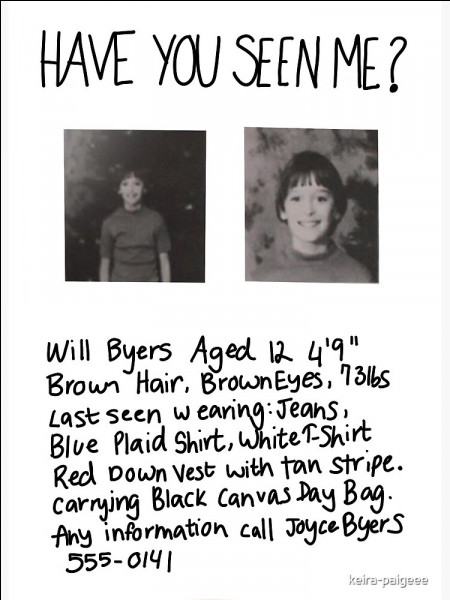 HAVE YOU SEEN ME?
Will Byers Aged 12 4'9"
Brown Hair, Brown Eyes, 73lbs
Last seen wearing: Jeans,
Blue Plaid Shirt, White T-Shirt
Red Down Vest with tan stripe.
Carrying Black Canvas Day Bag.
Any information call Joyce Byers
555-0141
keira-paigeee